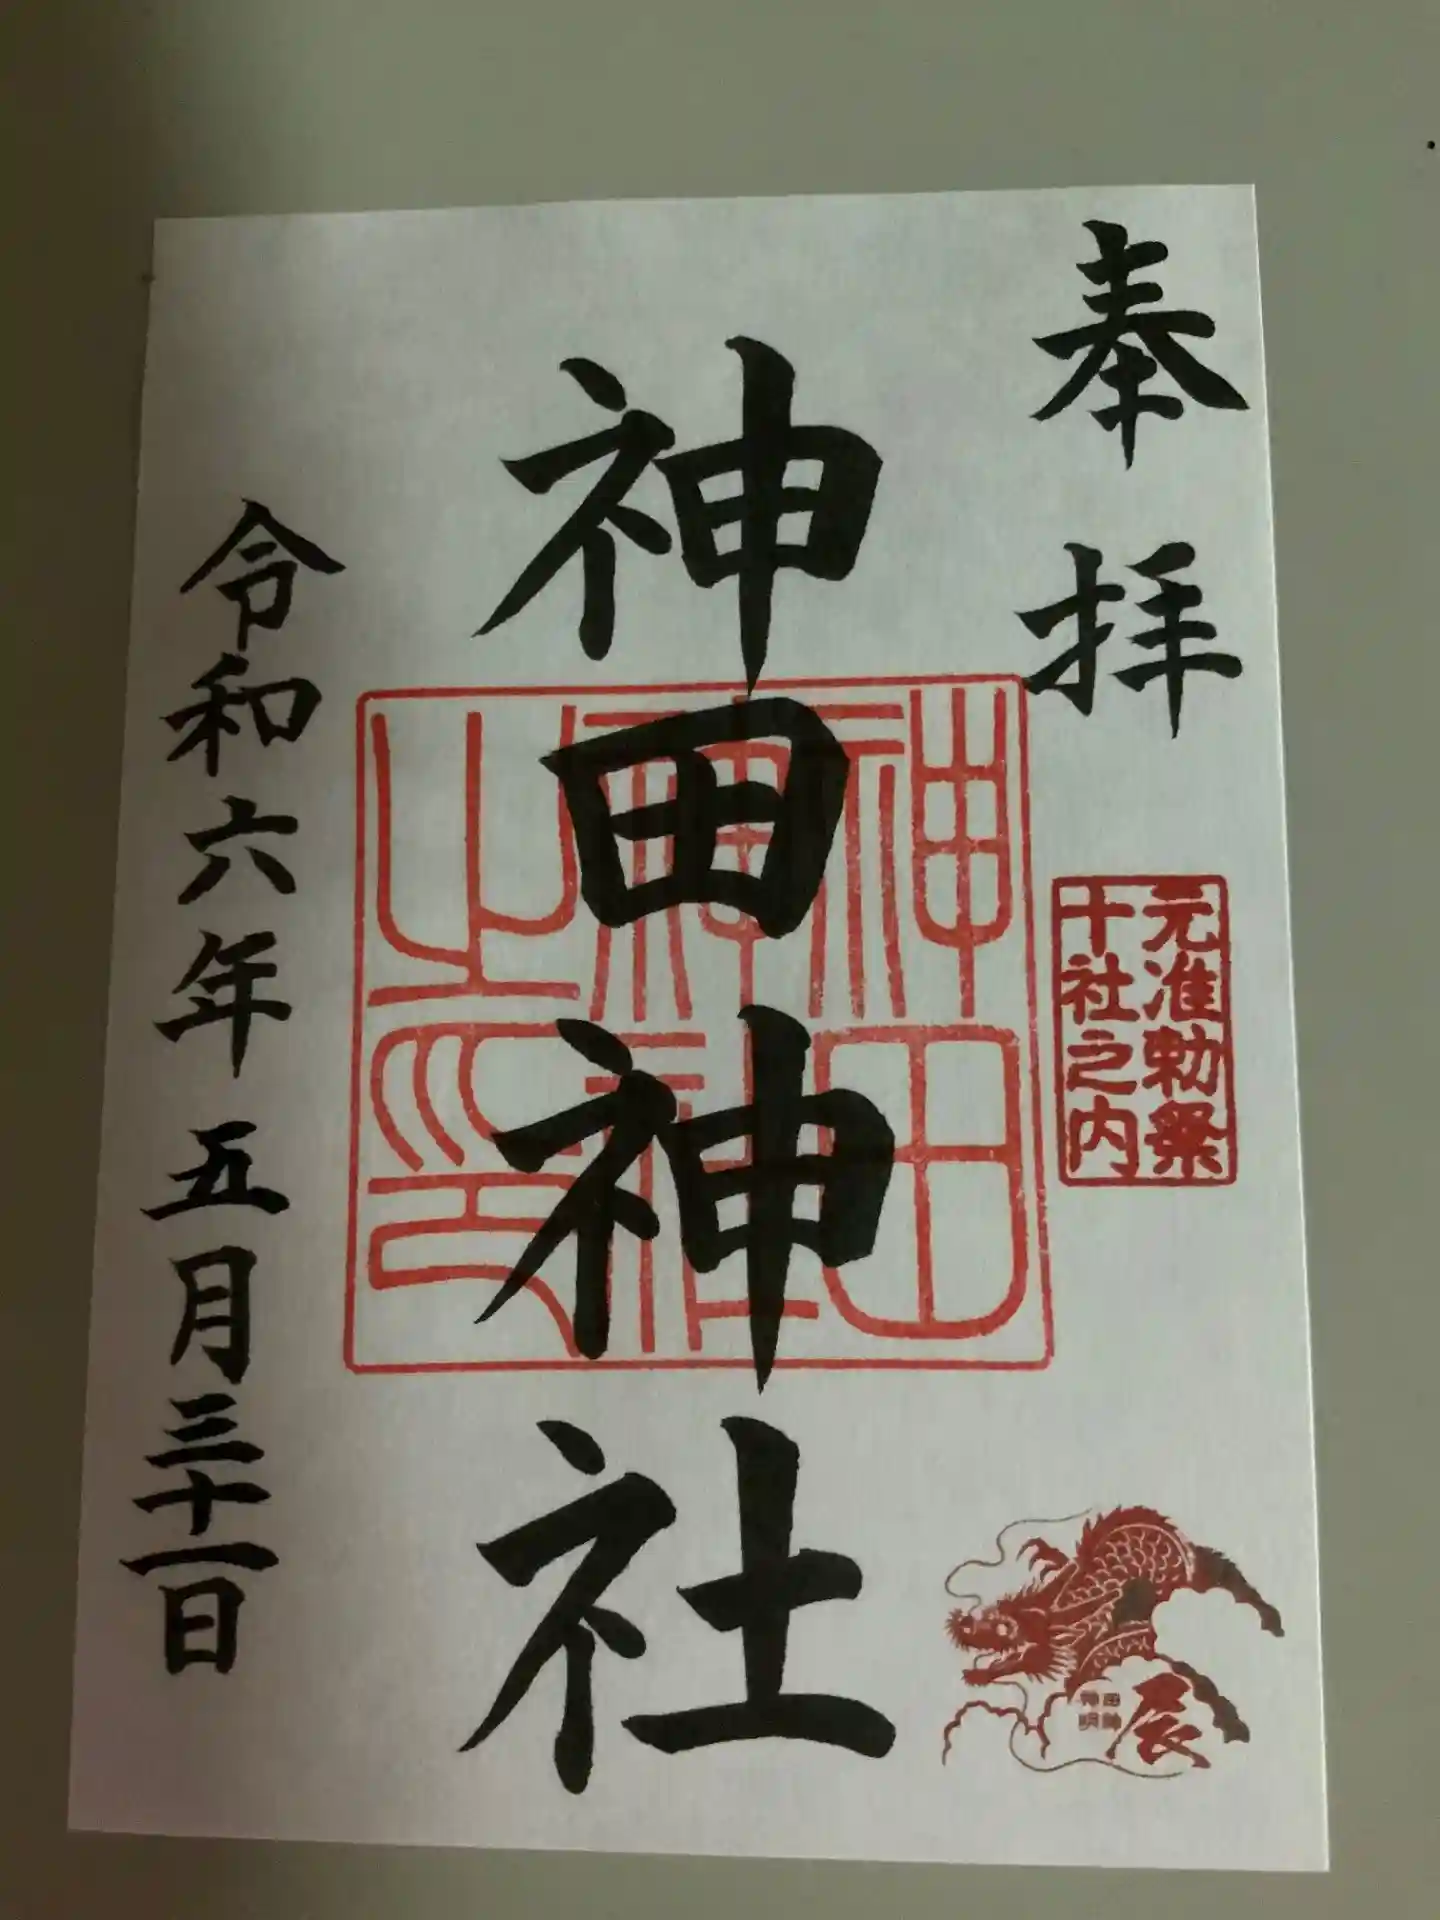 奉拝
元准勅祭
十社之内
神田神社
神田
神社
之印
令和六年五月三十一日
辰
田神
神明